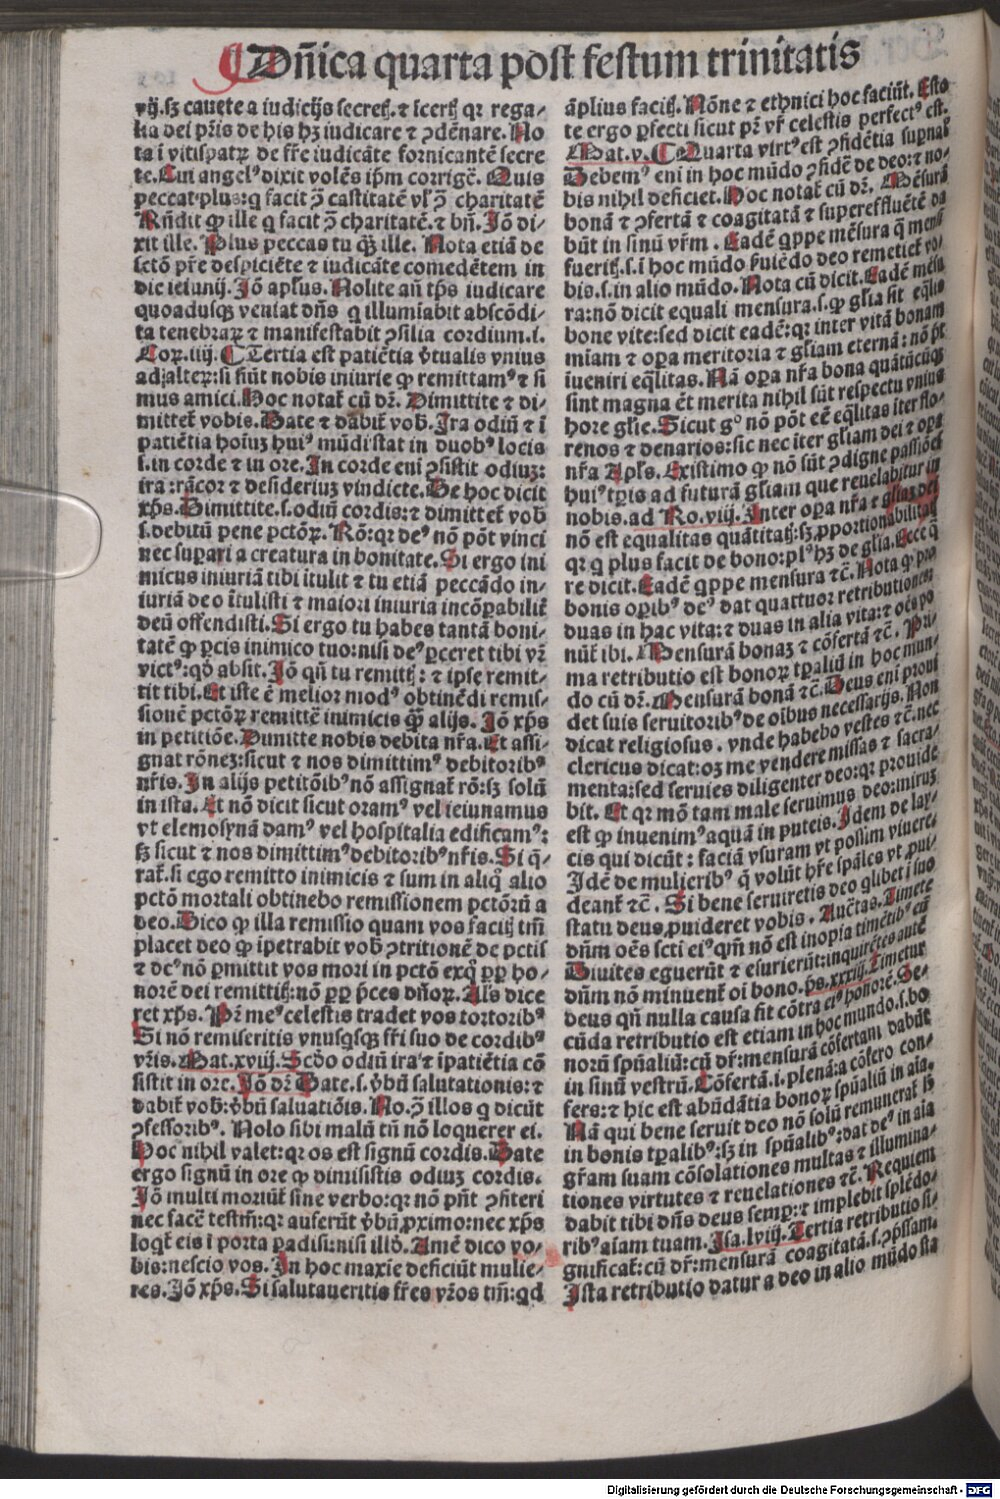 ¶ Dñica quarta post festum trinitatis
vij. sz cauete a iudicijs secret. ⁊ icert qr rega-
lia dei pris de his hz iudicare ⁊ ꝯdẽnare. No
ta i vitispatꝝ de fre iudicãte fornicantẽ secre
te. Cui angelꝰ dixit volẽs ipm corrigẽ. Quis
peccat plus: q facit ꝯ̃ castitatẽ vl ꝯ̃ charitatẽ
Rñdit ꝙ ille q facit ꝯ̃ charitatẽ. ⁊ bñ. Jõ di-
xit ille. Plus peccas tu q̃z ille. Nota etiã de
sctõ pre despiciẽte ⁊ iudicãte comedẽtem in
die ieiunij. Jõ aplus. Nolite añ tps iudicare
quoadusqꝫ veniat dñs q illumiabit abscõdi-
ta tenebraꝝ ⁊ manifestabit ꝯsilia cordium. i.
Coꝝ. iiij. ¶ Tertia est patiẽtia v̾tualis vnius
ad alteꝝ: si fiũt nobis iniurie ꝙ remittamꝰ ⁊ si
mus amici. Hoc notat cũ dr̃. Dimittite ⁊ di-
mittet vobis. Date ⁊ dabit vob. Ira odiũ ⁊ i
patiẽtia hoiuz huiꝰ mũdi stat in duobꝰ locis
s. in corde ⁊ in ore. In corde eni ꝯsistit odiuz:
ira: rãcor ⁊ desideriuz vindicte. De hoc dicit
xp̃s. Dimittite. s. odiũ cordis: ⁊ dimittet vob
s. debitũ pene pctõꝝ. Rõ: qr deꝰ nõ põt vinci
nec supari a creatura in bonitate. Si ergo ini
micus iniuriã tibi itulit ⁊ tu etiã peccãdo in-
iuriã deo ĩtulisti ⁊ maiori iniuria incõpabilit
deũ offendisti. Si ergo tu habes tantã boni-
tatẽ ꝙ ꝑcis inimico tuo: nisi deꝰ ꝑceret tibi vr̃
victꝰ: qd̾ absit. Jõ qñ tu remittꝭ: ⁊ ipse remit-
tit tibi. Et iste ẽ melior modꝰ obtinẽdi remis-
sionẽ pctõꝝ remittẽ inimicis q̃z alijs. Jõ xp̃s
in petitiõe. Dimitte nobis debita nr̃a. Et assi-
gnat rõnez: sicut ⁊ nos dimittimꝰ debitoribꝰ
nr̃is. In alijs petitõibꝰ nõ assignat rõ: sz solũ
in ista. Et nõ dicit sicut oramꝰ vel ieiunamus
vt elemosynã damꝰ vel hospitalia edificamꝰ:
sz sicut ⁊ nos dimittimꝰ debitoribꝰ nr̃is. Si q̃-
rat. si ego remitto inimicis ⁊ sum in aliq̾ alio
pctõ mortali obtinebo remissionem pctõrũ a
deo. Dico ꝙ illa remissio quam vos facitꝭ tm̃
placet deo ꝙ ipetrabit vob ꝯtritionẽ de pctis
⁊ deꝰ nõ ꝑmittit vos mori in pctõ exq̾ ꝓp̾ ho-
norẽ dei remittitꝭ: nõ ꝓp̾ p̾ces dñoꝝ. Als dice
ret xp̃s. Pr̃ meꝰ celestis tradet vos tortoribꝰ
Si nõ remiseritis vnusqsqꝫ fr̃i suo de cordibꝰ
vr̃is. Mat. xviij. Scd̾o odiũ ira ⁊ ipatiẽtia cõ
sistit in ore. Jõ dr̃ Date. s. v̾bũ salutationis: ⁊
dabit vob: v̾bũ saluatiõis. No. ꝯ̃ illos q dicũt
ꝯfessoribꝰ. Nolo sibi malũ tñ nõ loquerer ei.
Hoc nihil valet: qr os est signũ cordis. Date
ergo signũ in ore ꝙ dimisistis odiuz cordis.
Jõ multi moriũt sine verbo: qr nõ pñt ꝯfiteri
nec facẽ testm̃: qr auferũt v̾bũ ꝓximo: nec xp̃s
loqt eis i porta padisi: nisi illd̾. Amẽ dico vo-
bis: nescio vos. In hoc maxie deficiũt mulie-
res. Jõ xp̃s. Si salutaueritis fr̃es vr̃os tm̃: qd
ãplius facitꝭ. Nõne ⁊ ethnici hoc faciũt. Esto
te ergo ꝑfecti sicut pr̃ vr̃ celestis perfectꝰ est.
Mat. v. ¶ Quarta virtꝰ est ꝯfidẽtia supnaꝭ
Debemꝰ eni in hoc mũdo ꝯfidẽ de deo: ⁊ no-
bis nihil deficiet. Hoc notat cũ dr̃. Mẽsurã
bonã ⁊ ꝯfertã ⁊ coagitatã ⁊ supereffluẽtẽ da
bũt in sinũ vr̃m. Eadẽ qppe mẽsura q̃ mensi
fueritꝭ. s. i hoc mũdo p̾uiẽdo deo remetiet vo-
bis. s. in alio mũdo. Nota cũ dicit. Eadẽ mẽsu
ra: nõ dicit equali mensura. s. ꝙ gl̃ia sit eq̃lis
bone vite: sed dicit eadẽ: qr inter vitã bonam
miam ⁊ opa meritoria ⁊ gl̃iam eternã: nõ põt
iueniri eq̃litas. Nã opa nr̃a bona quãtũcũqꝫ
sint magna ẽt merita nihil sũt respectu vnius
hore gl̃ie. Sicut gº nõ põt eẽ eq̃litas iter flo-
renos ⁊ denarios: sic nec iter gl̃iam dei ⁊ opa
nr̃a Apls. Existimo ꝙ nõ sũt ꝯdigne passiões
huiꝰ tp̃ris ad futurã gl̃iam que reuelabitur in
nobis. ad Ro. viij. Inter opa nr̃a ⁊ gl̃iaz dei
nõ est equalitas quãtitatꝭ: sz ꝓportionabilitatꝭ
qr q plus facit de bono: plꝰ hz de gl̃ia. Ecce q̃
re dicit. Eadẽ qppe mensura ⁊c̃. Nota ꝙ pro
bonis opibꝰ deꝰ dat quattuor retributiones
duas in hac vita: ⁊ duas in alia vita: ⁊ oẽs po
nũt ibi. Mensurã bonaz ⁊ cõfertã ⁊c̃. Pri-
ma retributio est bonoꝝ tp̃aliũ in hoc mun-
do cũ dr̃. Mensurã bonã ⁊c̃. Deus eni proui
det suis seruitoribꝰ de oibus necessarijs. Non
dicat religiosus. vnde habebo vestes ⁊c̃. nec
clericus dicat: oz me vendere missas ⁊ sacra-
menta: sed seruies diligenter deo: qr prouide
bit. Et qr mõ tam male seruimus deo: miruz
est ꝙ inuenimꝰ aquã in puteis. Idem de lay-
cis qui dicũt: faciã vsuram vt possim viuere:
Idẽ de mulieribꝰ q̃ volũt hr̃e spãles vt ꝓui-
deant ⁊c̃. Si bene seruiretis deo qlibet i suo
statu deus ꝓuideret vobis. Auc̃tas. Timete
dñm oẽs scti eiꝰ qm̃ nõ est inopia timẽtibꝰ eũ
Diuites eguerũt ⁊ esurierũt: inquirẽtes autẽ
dñm nõ minuent oi bono. ps. xxxiij. Timetur
deus qñ nulla causa fit cõtra eiꝰ honorẽ. Se-
cũda retributio est etiam in hoc mundo. s. bo
norũ spũaliũ: cũ dr̃: mensurã cõfertam dabũt
in sinũ vestrũ. Cõfertã. i. plenã: a cõfero con-
fers: ⁊ hic est abũdãtia bonoꝝ spũaliũ in aĩa.
Nã qui bene seruit deo nõ solũ remunerat sz
in bonis tp̃alibꝰ: sz in spũalibꝰ: dat deꝰ in aĩa
gr̃am suam cõsolationes multas ⁊ illumina-
tiones virtutes ⁊ reuelationes ⁊c̃. Requiem
dabit tibi dñs deus semp: ⁊ implebit splẽdo-
ribꝰ aĩam tuam. Isa. lviij. Tertia retributio si-
gnificat: cũ dr̃: mensurã coagitatã. s. ꝯpssam.
Ista retributio datur a deo in alio mũdo sta
Digitalisierung gefördert durch die Deutsche Forschungsgemeinschaft - DFG